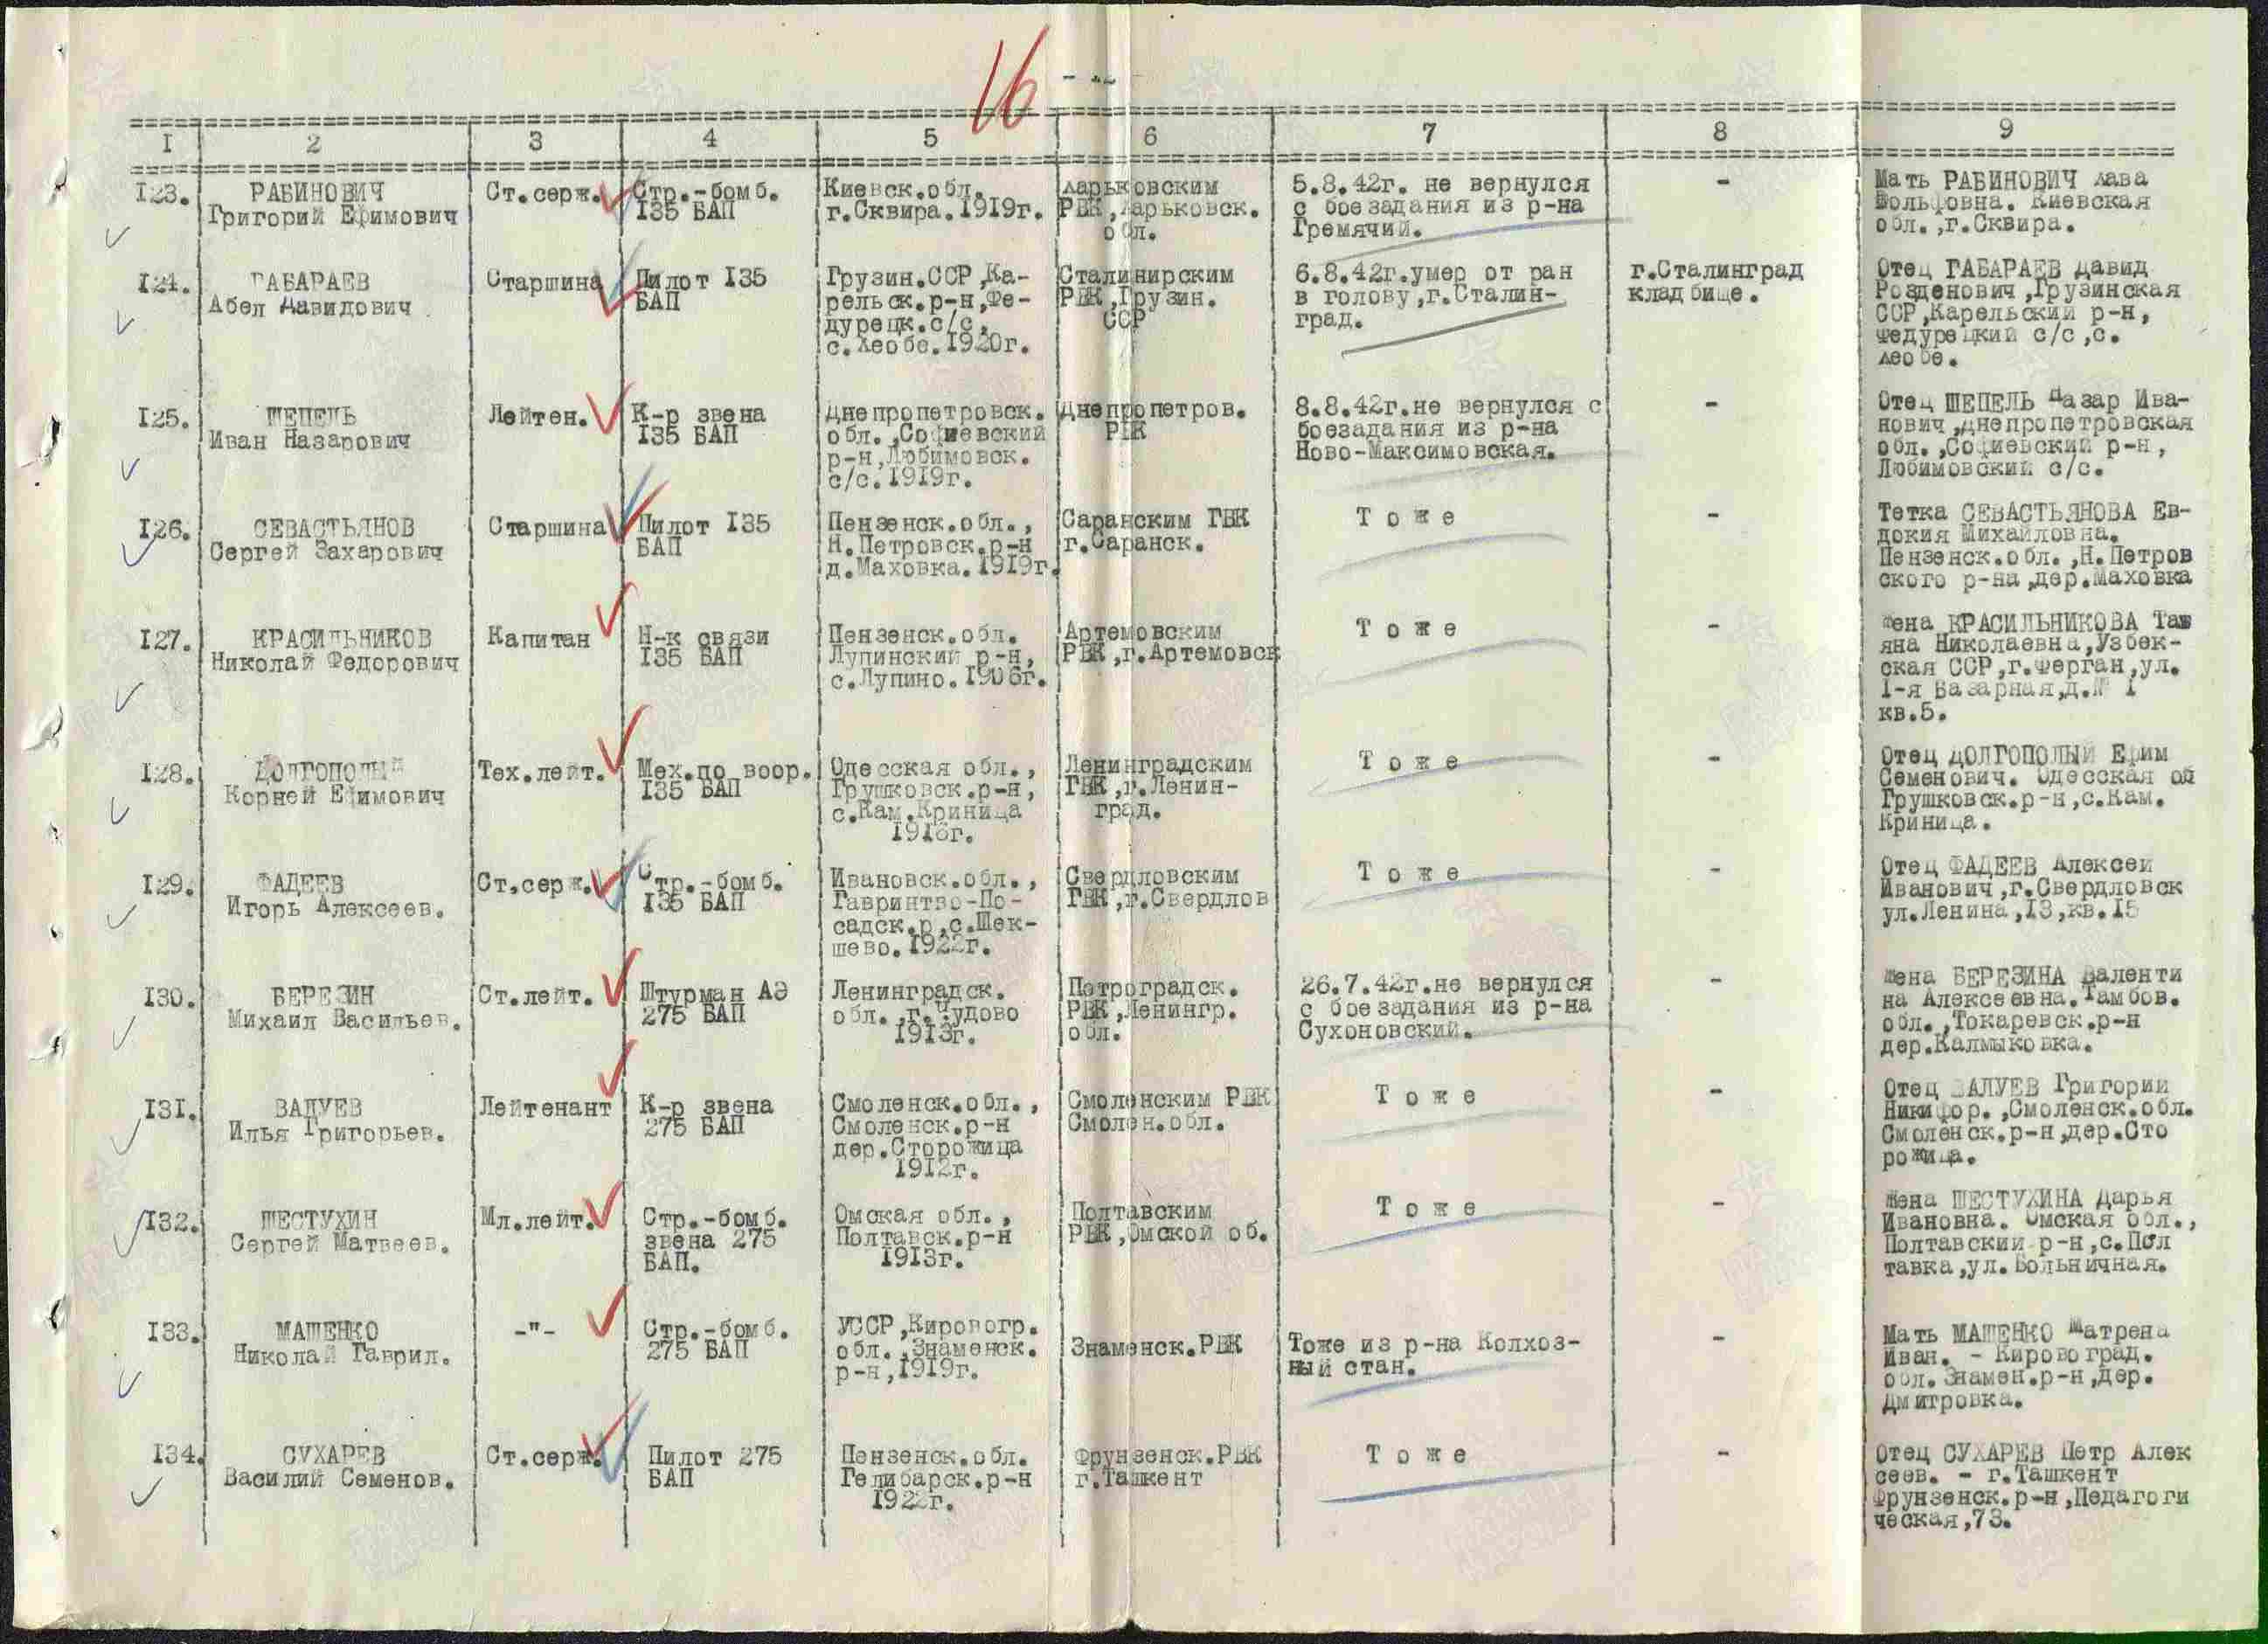 16
I 2 3 4 5 6 7 8 9
I23.
РАБИНОВИЧ
Григорий Ефимович
Ст.серж.
Стр.-бомб.
I35 БАП
Киевск.обл.
г.Сквира.I9I9г.
Харьковским
РВК,Харьковск.
обл.
5.8.42г. не вернулся
с боезадания из р-на
Гремячий.
-
Мать РАБИНОВИЧ Хава
Вольфовна. Киевская
обл.,г.Сквира.
I24.
ГАБАРАЕВ
Абел Давидович
Старшина
Пилот I35
БАП
Грузин.ССР,Ка-
рельск.р-н,Фе-
дурецк.с/с,
с.Леобе.I920г.
Сталинирским
РВК,Грузин.
ССР
6.8.42г.умер от ран
в голову,г.Сталин-
град.
г.Сталинград
кладбище.
Отец ГАБАРАЕВ Давид
Розденович,Грузинская
ССР,Карельский р-н,
Федурецкий с/с,с.
Леобе.
I25.
ШЕПЕЛЬ
Иван Назарович
Лейтен.
К-р звена
I35 БАП
Днепропетровск.
обл.,Софиевский
р-н,Любимовск.
с/с.I9I9г.
Днепропетров.
РВК
8.8.42г.не вернулся с
боезадания из р-на
Ново-Максимовская.
-
Отец ШЕПЕЛЬ Назар Ива-
нович,Днепропетровская
обл.,Софиевский р-н,
Любимовский с/с.
I26.
СЕВАСТЬЯНОВ
Сергей Захарович
Старшина
Пилот I35
БАП
Пензенск.обл.,
Н.Петровск.р-н
д.Маховка.I9I9г.
Саранским ГВК
г.Саранск.
Т о ж е
-
Тетка СЕВАСТЬЯНОВА Ев-
докия Михайловна.
Пензенск.обл.,Н.Петров
ского р-на,дер.Маховка
I27.
КРАСИЛЬНИКОВ
Николай Федорович
Капитан
Н-к связи
I35 БАП
Пензенск.обл.
Лупинский р-н,
с.Лупино.I906г.
Артемовским
РВК,г.Артемовск
Т о ж е
-
Жена КРАСИЛЬНИКОВА Тать
яна Николаевна,Узбек-
ская ССР,г.Ферган,ул.
I-я Базарная,д.№ I
кв.5.
I28.
ДОЛГОПОЛЫЙ
Корней Ефимович
Тех.лейт.
Мех.по воор.
I35 БАП
Одесская обл.,
Грушковск.р-н,
с.Кам.Криница
I9I6г.
Ленинградским
ГВК,г.Ленин-
град.
Т о ж е
-
Отец ДОЛГОПОЛЫЙ Ефим
Семенович. Одесская об
Грушковск.р-н,с.Кам.
Криница.
I29.
ФАДЕЕВ
Игорь Алексеев.
Ст.серж.
Стр.-бомб.
I35 БАП
Ивановск.обл.,
Гавринтво-По-
садск.р,с.Шек-
шево.I922г.
Свердловским
ГВК,г.Свердлов
Т о ж е
-
Отец ФАДЕЕВ Алексей
Иванович,г.Свердловск
ул.Ленина,I3,кв.I5
I30.
БЕРЕЗИН
Михаил Васильев.
Ст.лейт.
Штурман АЭ
275 БАП
Ленинградск.
обл.,г.Чудово
I9I3г.
Петроградск.
РВК,Ленингр.
обл.
26.7.42г.не вернулся
с боезадания из р-на
Сухоновский.
-
Жена БЕРЕЗИНА Валенти
на Алексеевна.Тамбов.
обл.,Токаревск.р-н
дер.Калмыковка.
I3I.
ВАЛУЕВ
Илья Григорьев.
Лейтенант
К-р звена
275 БАП
Смоленск.обл.,
Смоленск.р-н
дер.Сторожица
I9I2г.
Смоленским РВК
Смолен.обл.
Т о ж е
-
Отец ВАЛУЕВ Григорий
Никифор.,Смоленск.обл.
Смоленск.р-н,дер.Сто
рожица.
I32.
ШЕСТУХИН
Сергей Матвеев.
Мл.лейт.
Стр.-бомб.
звена 275
БАП.
Омская обл.,
Полтавск.р-н
I9I3г.
Полтавским
РВК,Омской об.
Т о ж е
-
Жена ШЕСТУХИНА Дарья
Ивановна. Омская обл.,
Полтавский р-н,с.Пол
тавка,ул.Больничная.
I33.
МАШЕНКО
Николай Гаврил.
-"-
Стр.-бомб.
275 БАП
УССР,Кировогр.
обл.,Знаменск.
р-н,I9I9г.
Знаменск.РВК
Тоже из р-на Колхоз-
ный стан.
-
Мать МАШЕНКО Матрена
Иван. - Кировоград.
обл.Знамен.р-н,дер.
Дмитровка.
I34.
СУХАРЕВ
Василий Семенов.
Ст.серж.
Пилот 275
БАП
Пензенск.обл.
Гелибарск.р-н
I922г.
Фрунзенск.РВК
г.Ташкент
Т о ж е
-
Отец СУХАРЕВ Петр Алек
сеев. - г.Ташкент
Фрунзенск.р-н,Педагоги
ческая,73.